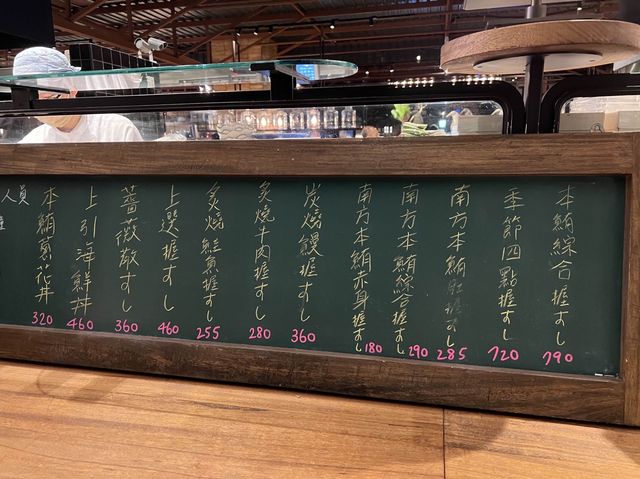 本鮪綜合握すし 790
季節四點握すし 720
南方本鮪握すし 285
南方本鮪綜合握すし 290
南方本鮪赤身握すし 180
炭燒鰻握すし 360
炙燒牛肉握すし 280
炙燒鮭魚握すし 255
上選握すし 460
薔薇散すし 360
上引海鮮丼 460
本鮪蔥花丼 320
人員